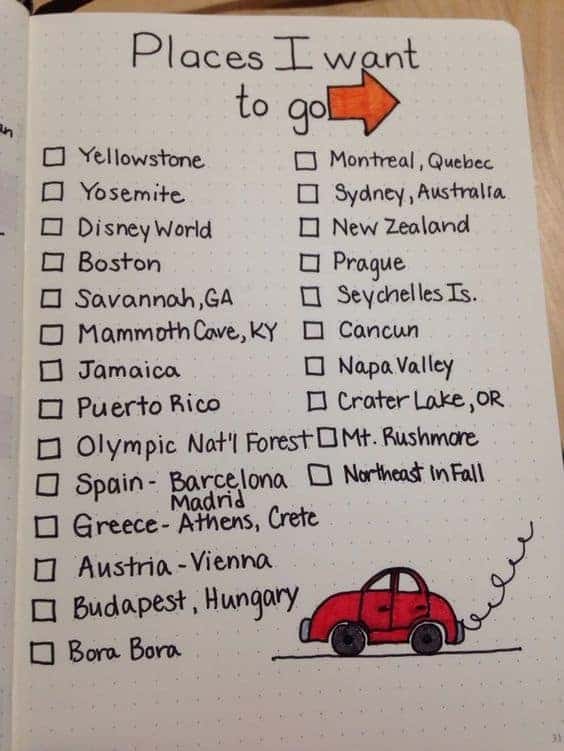 Places I want
to go
Yellowstone
Yosemite
Disney World
Boston
Savannah, GA
Mammoth Cave, KY
Jamaica
Puerto Rico
Olympic Nat'l Forest
Spain - Barcelona
Madrid
Greece - Athens, Crete
Austria - Vienna
Budapest, Hungary
Bora Bora
Montreal, Quebec
Sydney, Australia
New Zealand
Prague
Seychelles Is.
Cancun
Napa Valley
Crater Lake, OR
Mt. Rushmore
Northeast in Fall